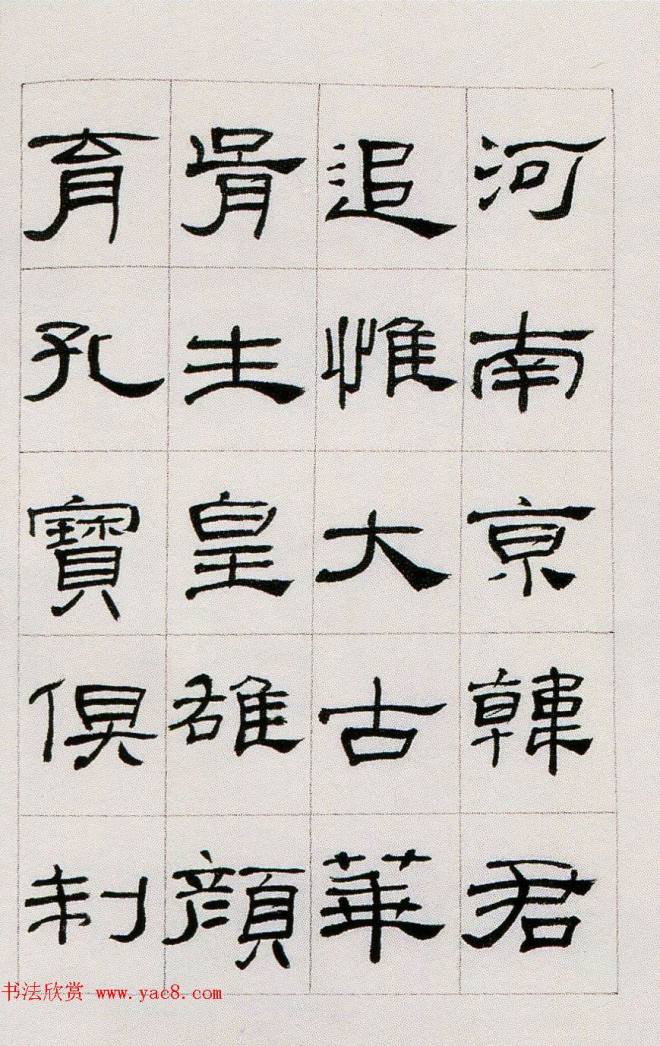 河南京韓君
追惟大古華
胥生皇雄顏
育孔寶俱制
书法欣赏 www.yac8.com